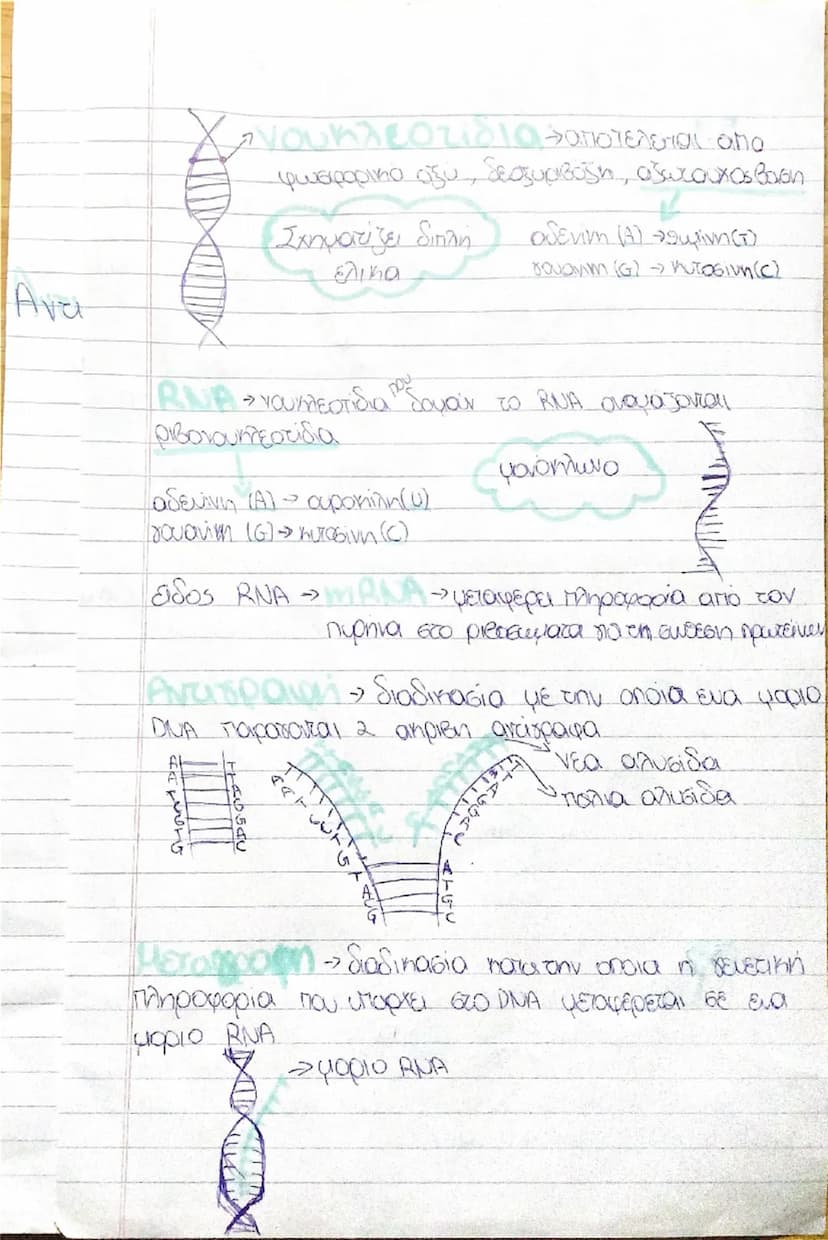 νουκλεοτίδια → αποτελείται απο
φωσφορικο οξυ, δεοξυριβοζη, αζωτουχος βαση
Σχηματίζει διπλη
ελικα
αδενίνη (A) → θυμίνη (T)
γουανινη (G) → κυτοσινη (C)
Αντι
RNA → νουκλεοτίδια που δομούν το RNA ονομάζονται
ριβονουκλεοτίδια
μονόκλωνο
αδενίνη (A) → ουρακίλη (U)
γουανίνη (G) → κυτοσίνη (C)
είδος RNA → mRNA → μεταφέρει πληροφορία από τον
πυρήνα στο ριβοσωματα για τη συνθεση πρωτεινων
Αντιγραφή → διαδικασία με την οποία ενα μοριο
DNA παραγονται 2 ακριβη αντίγραφα
νέα αλυσίδα
παλια αλυσίδα
A T
A T
T A
G
G C
A A T C C T G T A C G
T T A G G A C A T G C
Μεταγραφη → διαδικασία κατα την οποια η γενετική
πληροφορία που υπαρχει στο DNA μεταφέρεται σε ενα
μοριο RNA
→ μοριο RNA